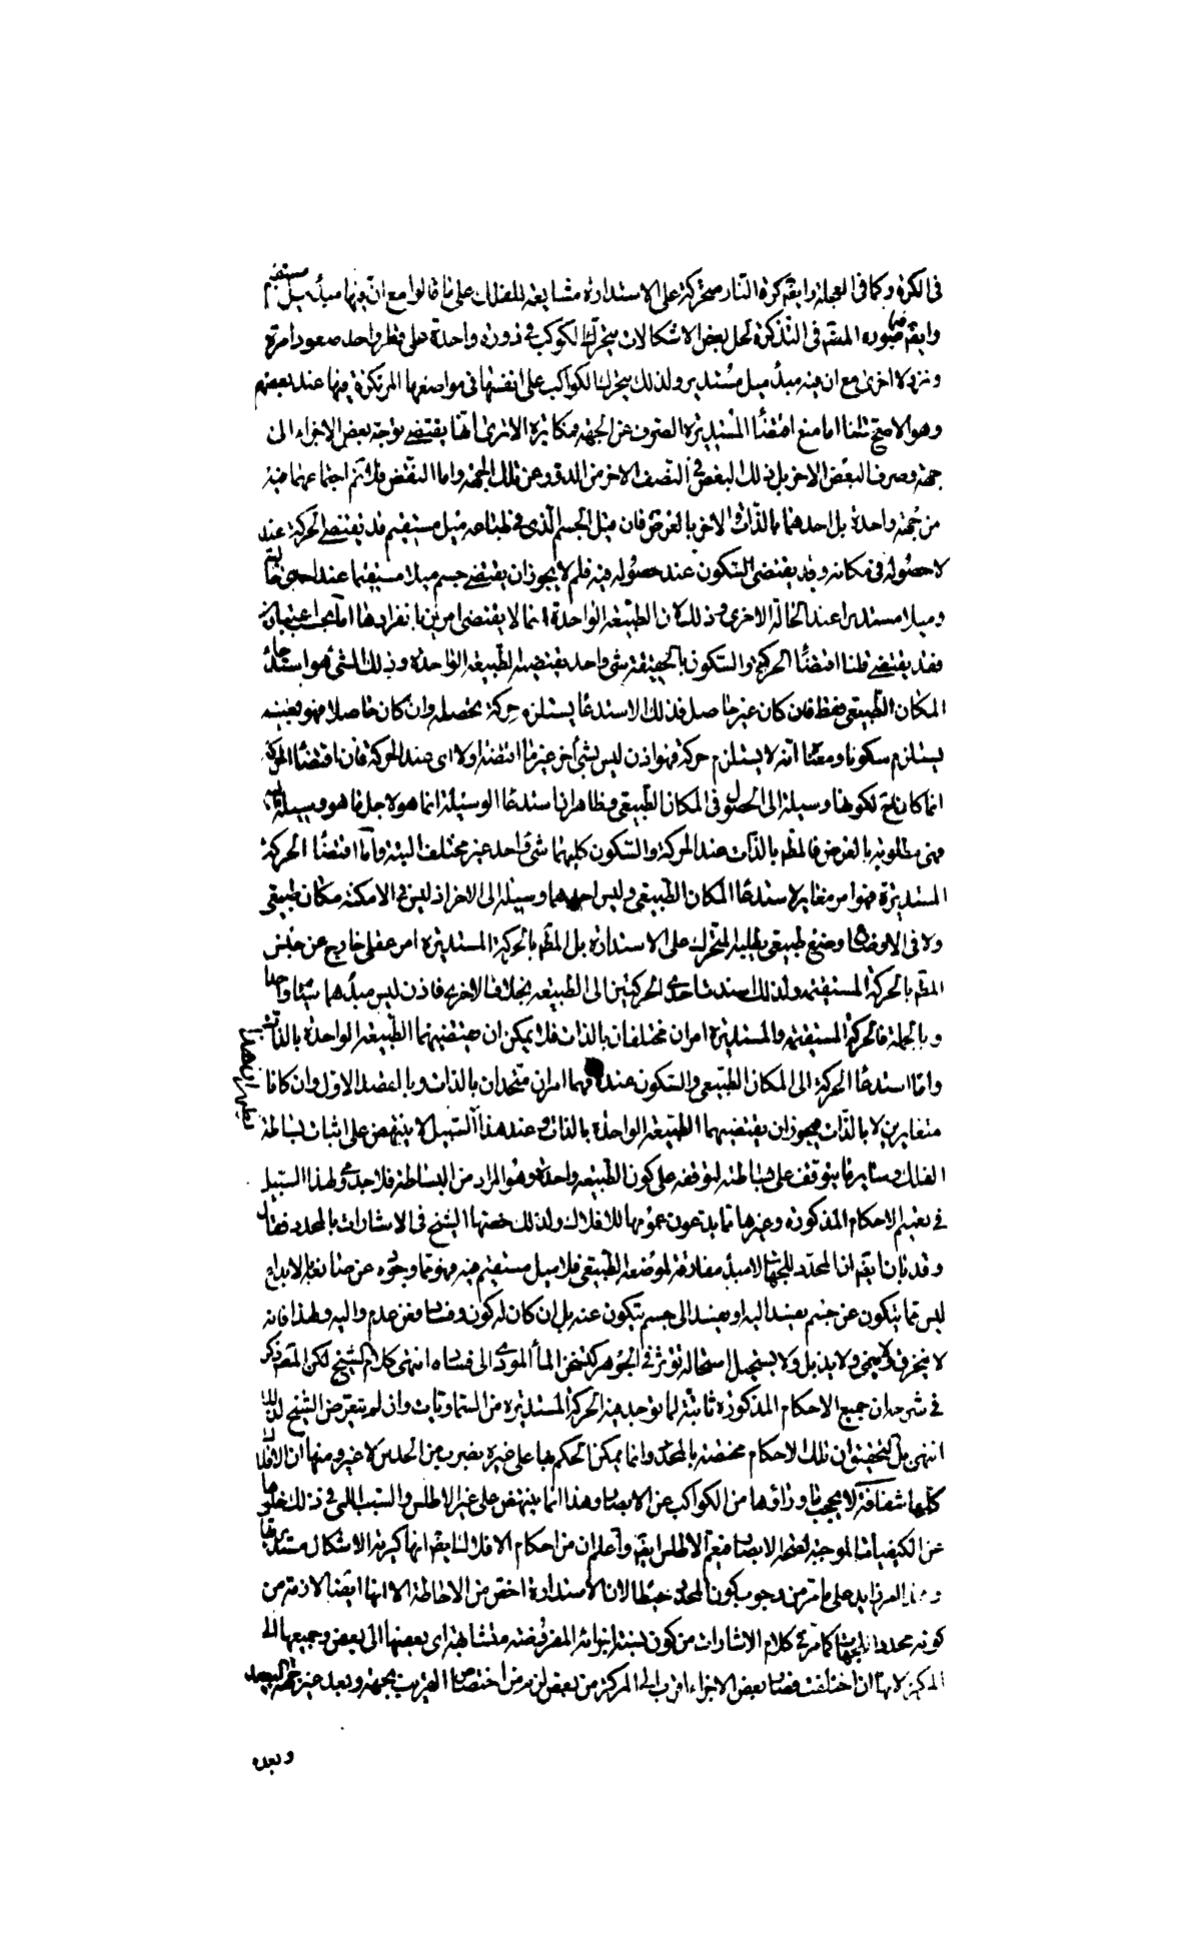 فى الكرة وكما فى العجلة وايضم كرة النار متحركة على الاستدارة مشايعة للفلك على ما قالوا مع ان فيها مبدأ ميل مستقيم
وايضم فيما صوره المصم فى التذكرة لحل بعض الاشكالات يتحرك الكوكب فى ذورة واحدة على قطر واحد صعودا مرة
ونزولا اخرى مع ان فيه مبدأ ميل مستدير ولذلك يتحرك الكواكب على انفسها فى مواضعها المرتكزة فيها عند بعضهم
وهو الاصح قلنا اما منع اقتضاء المستديرة الصرف عن الجهة فمكابرة الا ترى انها يقتضى توجه بعض الاجزاء الى
جهة وصرف البعض الاخر بل ذلك البعض فى النصف الاخر من الدور عن تلك الجهة واما النقض فلا تم اجتماعهما فيه
من جهة واحدة بل احدهما بالذات والاخر بالعرض فان قيل الجسم الذى فى طباعه ميل مستقيم قد يقتضى الحركة عند
لا حصوله فى مكانه وقد يقتضى السكون عند حصوله فيه فلم لا يجوز ان يقتضى جسم ميلا مستقيما عند احدى حالتيه
وميلا مستديرا عند الحالة الاخرى وذلك لان الطبيعة الواحدة انما لا يقتضى امرين بانفرادها اما بحسب اعتبارين
فقد يقتضى قلنا اقتضاء الحركة والسكون بالحقيقة شئ واحد يقتضيه الطبيعة الواحدة وذلك الشئ هو استدعاء
المكان الطبيعى فقط فان كان غير حاصل فذلك الاستدعاء يستلزم حركة تحصله وان كان حاصلا فهو بعينه
يستلزم سكونا ومعناه انه لا يستلزم حركة فهو اذن ليس بشئ آخر غير ما اقتضته اولا اى عند الحركة فان اقتضاء الحركة
انما كان ثمة لكونها وسيلة الى الحصول فى المكان الطبيعى وظاهر ان استدعاء الوسيلة انما هو لاجل ما هو وسيلة اليه
فهى مطلوبة بالعرض فالمطم بالذات عند الحركة والسكون كليهما شئ واحد غير مختلف البتة واما اقتضاء الحركة
المستديرة فهو امر مغاير لاستدعاء المكان الطبيعى وليس احدهما وسيلة الى الاخر اذ ليس فى الامكنة مكان طبيعى
ولا فى الاوضاع وضع طبيعى يطلبه المتحرك على الاستدارة بل المطم بالحركة المستديرة امر عقلى خارج عن جنس
المطم بالحركة المستقيمة ولذلك استندت احدى الحركتين الى الطبيعة بخلاف الاخرى فاذن ليس مبدأهما شيئا واحدا
وبالجملة فالحركة المستقيمة والمستديرة امران مختلفان بالذات فلا يمكن ان يقتضيهما الطبيعة الواحدة بالذات
واما استدعاء الحركة الى المكان الطبيعى والسكون عنده فهما امران متحدان بالذات وبالقصد الاول وان كانا
متغايرين لا بالذات فيجوز ان يقتضيهما الطبيعة الواحدة بالذات وعند هذا السبيل لا ينتهض على اثبات بساطة
الفلك وساير ما يتوقف على بساطته لتوقفه على كون الطبيعة واحدة وهو المراد من البساطة فلا جدوى لهذا السبيل
فى تعميم الاحكام المذكورة وغيرها مما يدعون عمومها للافلاك ولذلك خصها الشيخ فى الاشارات بالمحدد فقال
وقد بان ايضم ان المحدد للجهات لا مبدأ مفارقة لموضعه الطبيعى فلا ميل مستقيم فيه فهو مما وجوده عن صانعه بالابداع
ليس مما يتكون عن جسم يفسد اليه او يفسد الى جسم يتكون عنه بل ان كان له كون وفساد فعن عدم واليه ولهذا فانه
لا ينخرق ولا ينمى ولا يذبل ولا يستحيل استحالة تؤثر فى الجوهر كتسخن الماء المؤدى الى فساده انتهى كلام الشيخ لكن المصم ذكر
فى شرحه ان جميع الاحكام المذكورة ثابتة لما يوجد فيه الحركة المستديرة من السماويات وان لم يتعرض الشيخ لذلك
انتهى بل التحقيق ان تلك الاحكام مختصة بالمحدد وانما يمكن الحكم بها على غيره بضرب من الحدس لا غير ومنها ان الافلاك
كلها شفافة لا يحجب ما وراؤها من الكواكب عن الابصار وهذا انما ينتهض على غير الاطلس والسبب اللمى فى ذلك خلوها
عن الكيفيات الموجبة لصحة الابصار فيعم الاطلس ايضم واعلم ان من احكام الافلاك ايضم انها كرية الاشكال مستديرتها
وهذا القدر زايد على ما مر من وجوب كون المحدد محيطا لان الاستدارة اخص من الاحاطة الا انها ايضا لازمة من
كونه محددا للجهات كما مر فى كلام الاشارات من كون نسبة اجزائه المفروضة متشابهة اى بعضها الى بعض وجميعها الى
المركز لانها ان اختلفت فصار بعض الاجزاء اقرب الى المركز من بعض لزم من اختصاص القريب بجهة وبعد غير جهة البعيد
وبعده